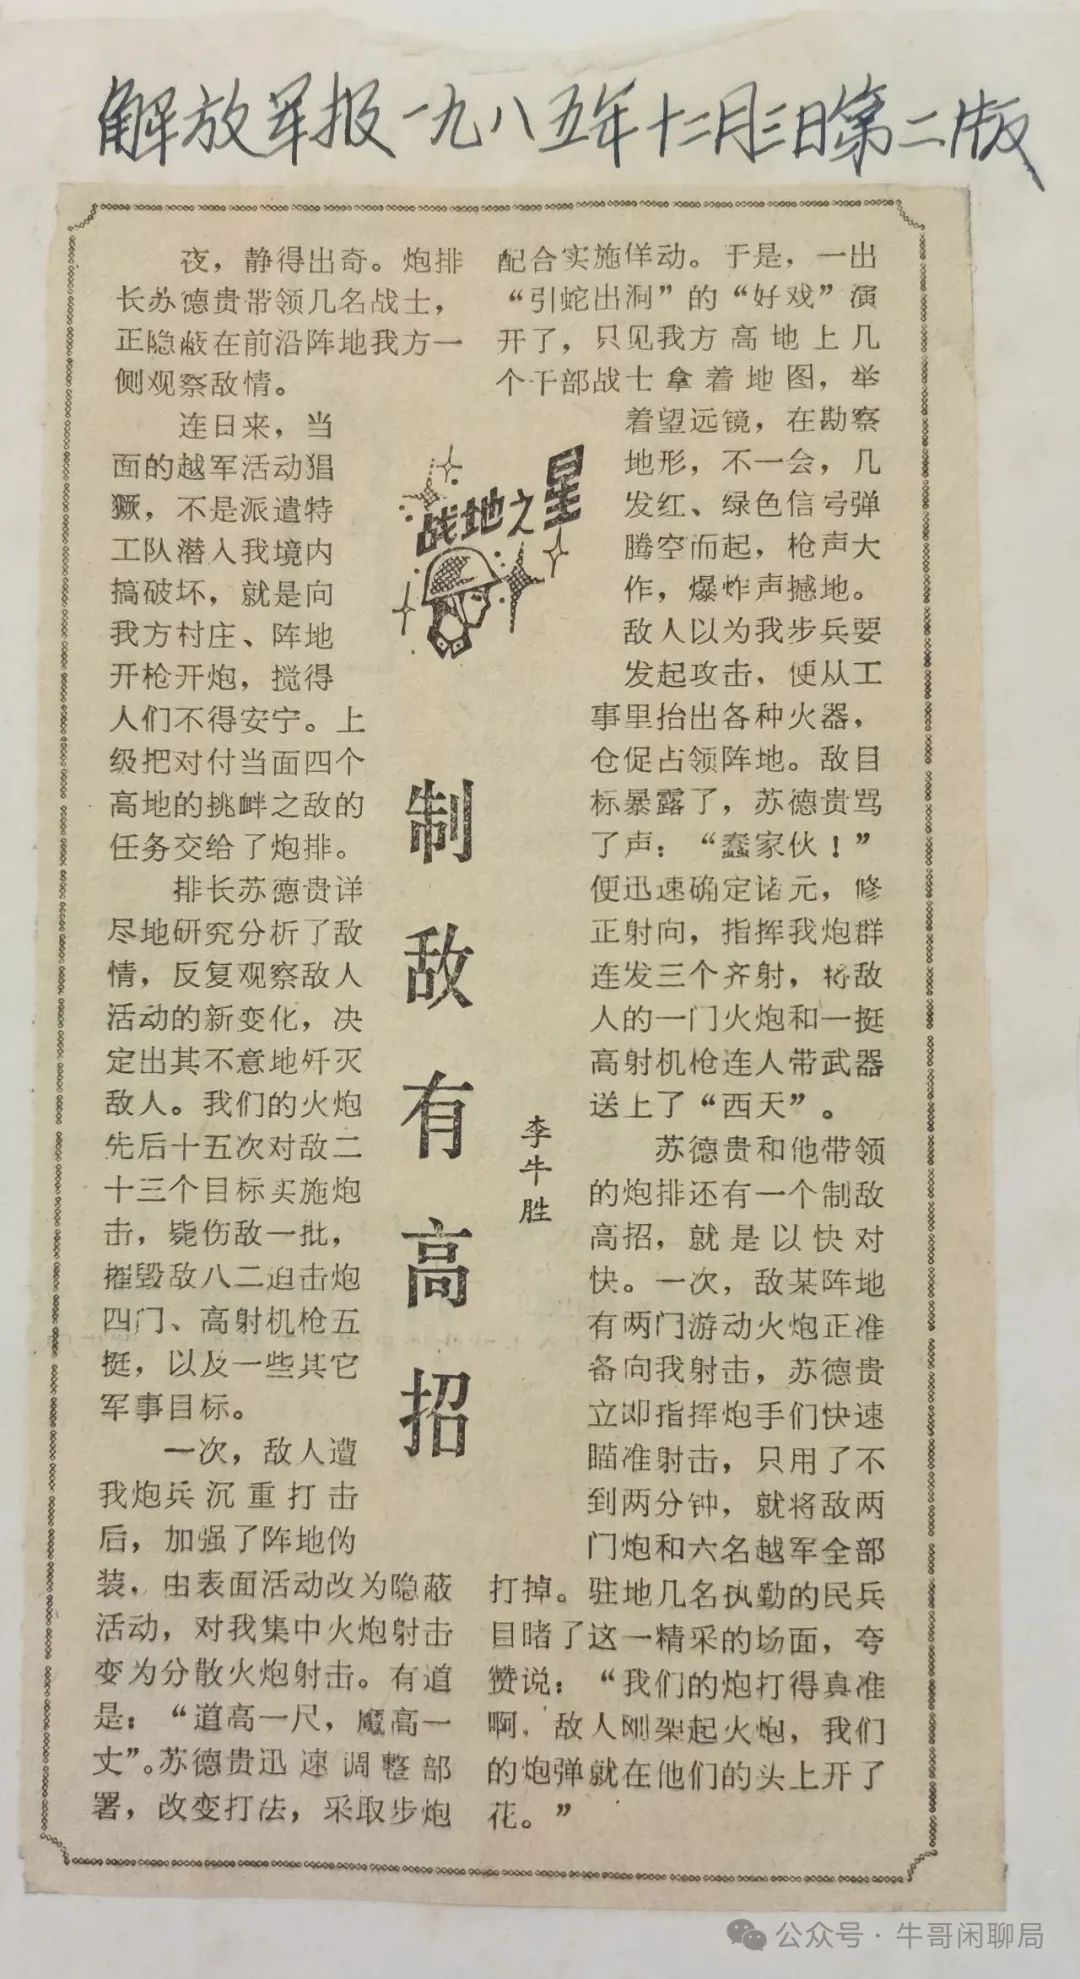 解放军报一九八五年十二月三日第二版
战地之星
制敌有高招
李牛胜
夜，静得出奇。炮排
长苏德贵带领几名战士，
正隐蔽在前沿阵地我方一
侧观察敌情。
连日来，当
面的越军活动猖
獗，不是派遣特
工队潜入我境内
搞破坏，就是向
我方村庄、阵地
开枪开炮，搅得
人们不得安宁。上
级把对付当面四个
高地的挑衅之敌的
任务交给了炮排。
排长苏德贵详
尽地研究分析了敌
情，反复观察敌人
活动的新变化，决
定出其不意地歼灭
敌人。我们的火炮
先后十五次对敌二
十三个目标实施炮
击，毙伤敌一批，
摧毁敌八二迫击炮
四门、高射机枪五
挺，以及一些其它
军事目标。
一次，敌人遭
我炮兵沉重打击
后，加强了阵地伪
装，由表面活动改为隐蔽
活动，对我集中火炮射击
变为分散火炮射击。有道
是：“道高一尺，魔高一
丈”。苏德贵迅速调整部
署，改变打法，采取步炮
配合实施佯动。于是，一出
“引蛇出洞”的“好戏”演
开了，只见我方高地上几
个干部战士拿着地图，举
着望远镜，在勘察
地形，不一会，几
发红、绿色信号弹
腾空而起，枪声大
作，爆炸声撼地。
敌人以为我步兵要
发起攻击，便从工
事里抬出各种火器，
仓促占领阵地。敌目
标暴露了，苏德贵骂
了声：“蠢家伙！”
便迅速确定诸元，修
正射向，指挥我炮群
连发三个齐射，将敌
人的一门火炮和一挺
高射机枪连人带武器
送上了“西天”。
苏德贵和他带领
的炮排还有一个制敌
高招，就是以快对
快。一次，敌某阵地
有两门游动火炮正准
备向我射击，苏德贵
立即指挥炮手们快速
瞄准射击，只用了不
到两分钟，就将敌两
门炮和六名越军全部
打掉。驻地几名执勤的民兵
目睹了这一精采的场面，夸
赞说：“我们的炮打得真准
啊，敌人刚架起火炮，我们
的炮弹就在他们的头上开了
花。”
公众号·牛哥闲聊局